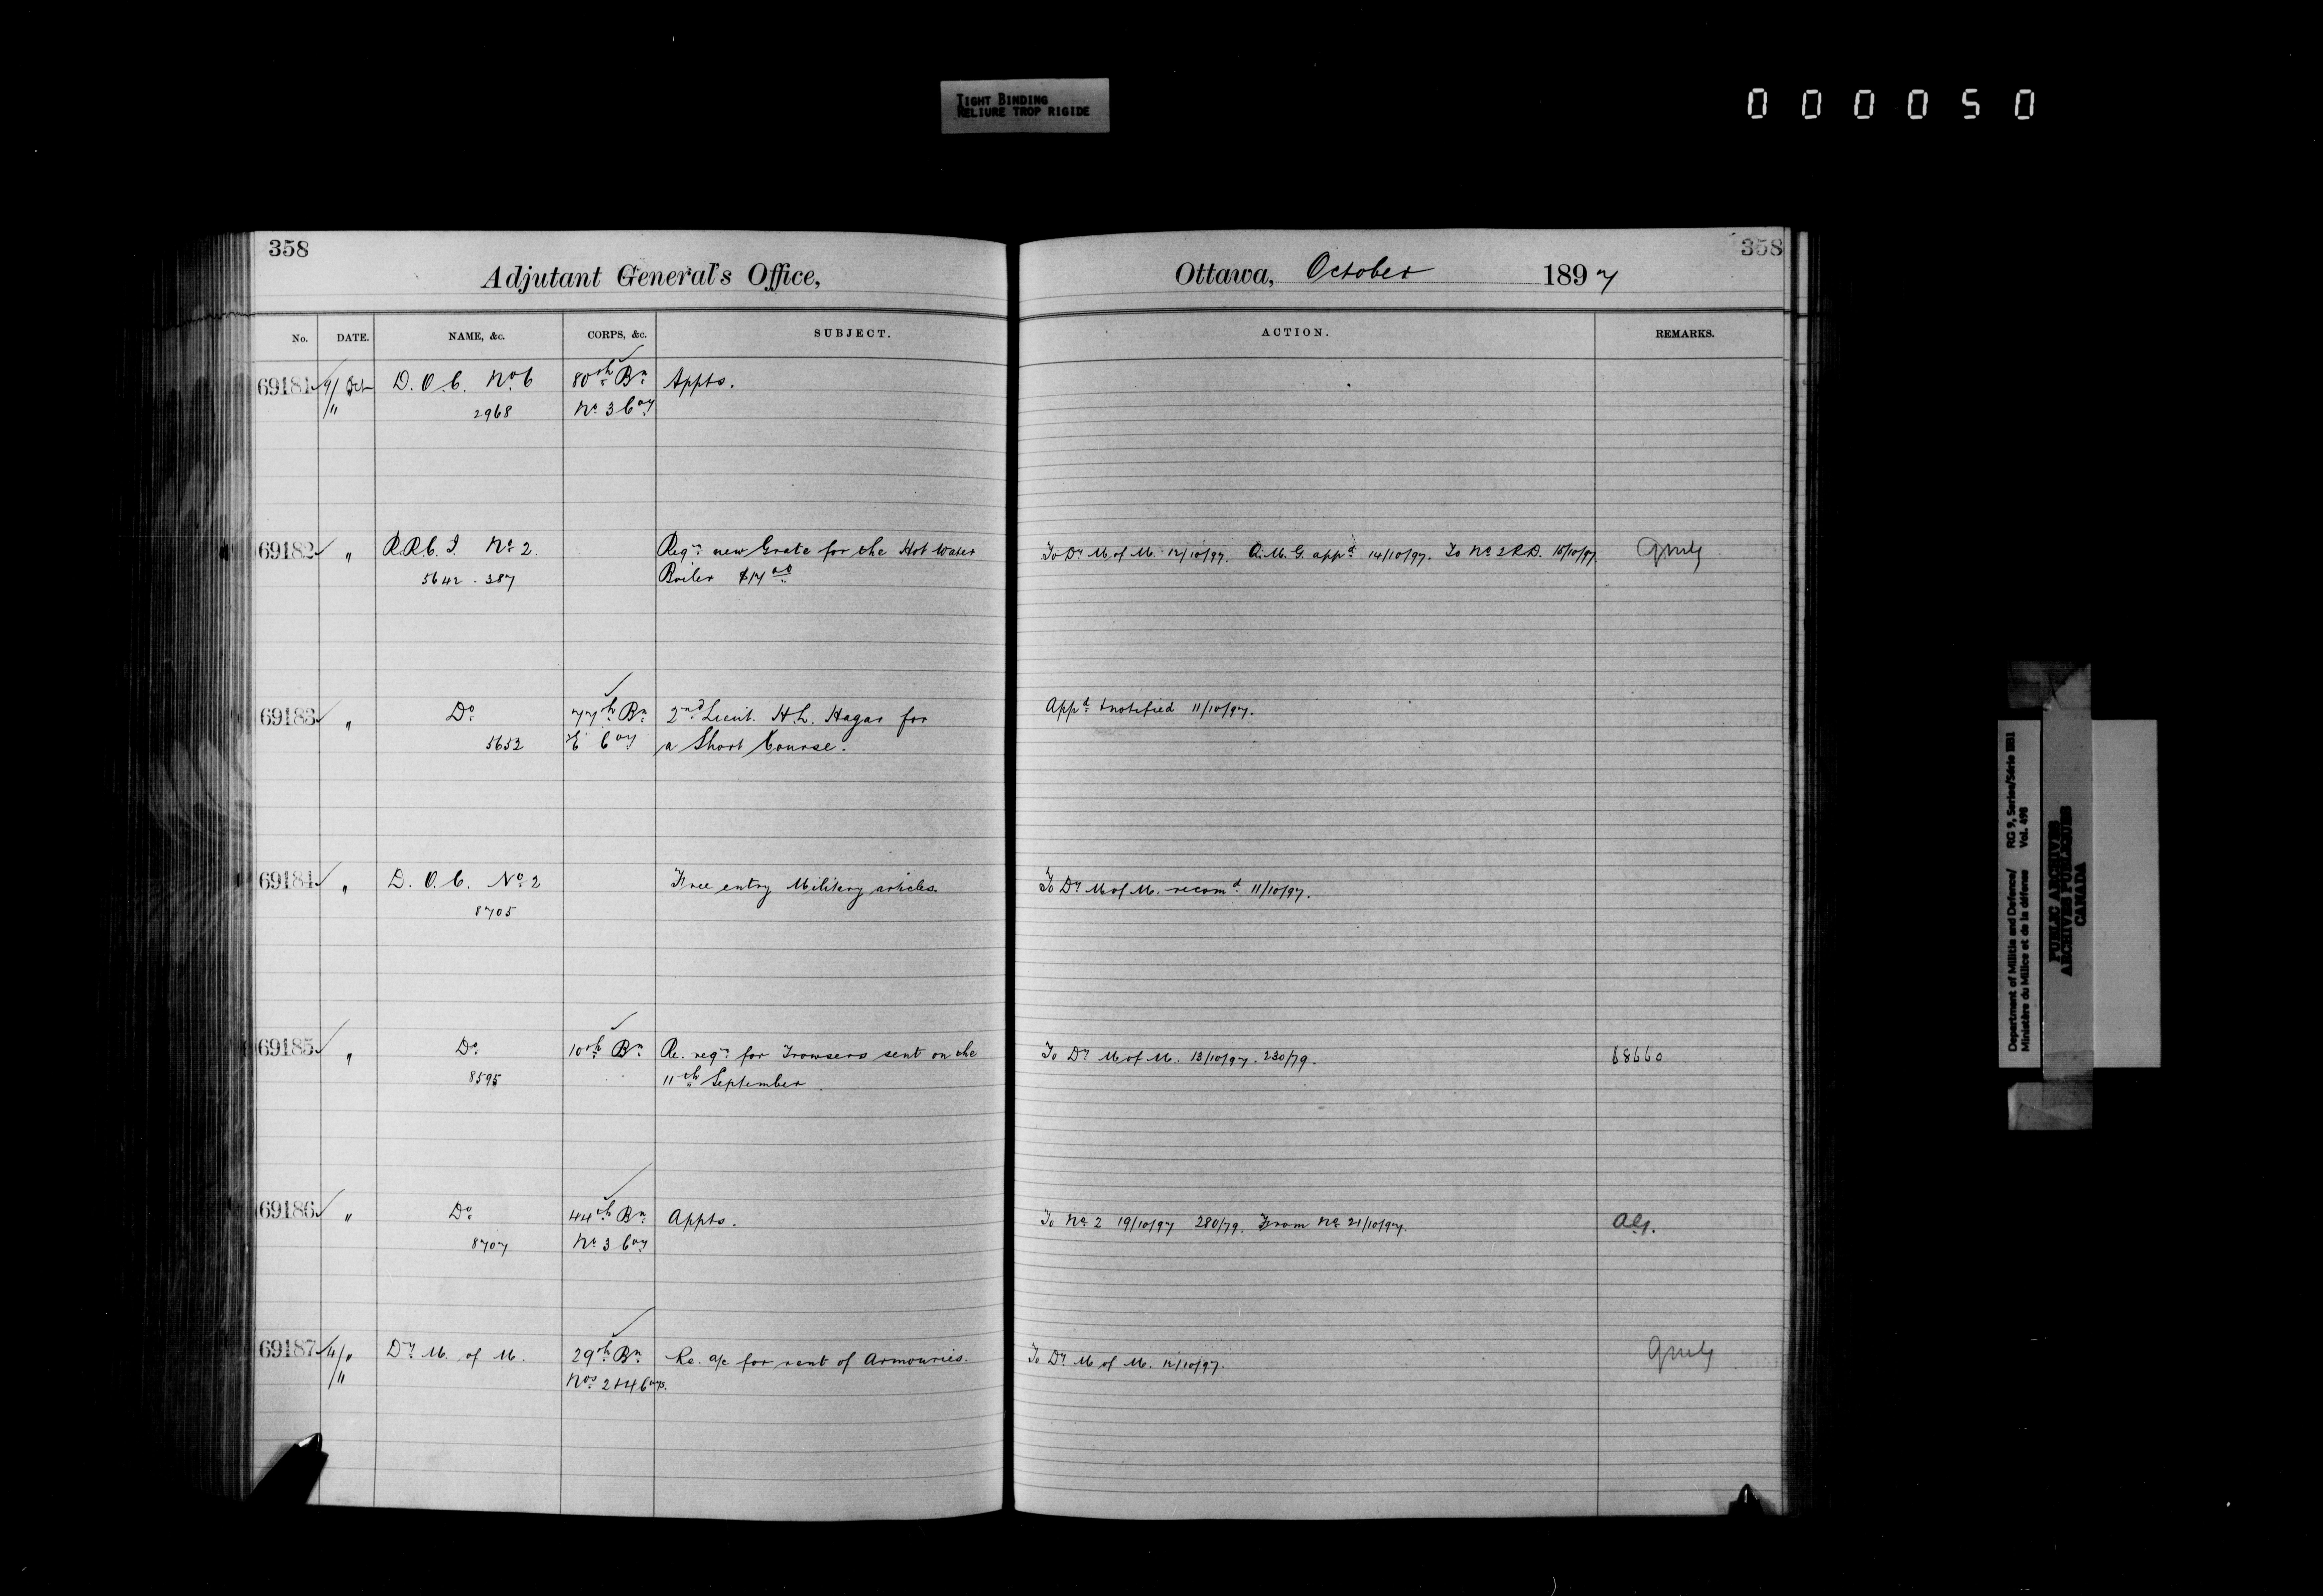 TIGHT BINDING
RELIURE TROP RIGIDE
000050
358
Adjutant General's Office,
No. DATE. NAME, &c. CORPS, &c. SUBJECT.
69181 9/11 Oct D. O. C. No 6 80th Bn Appts.
2968 No 3 Coy
69182 " R.R.C.I. No 2. Reqn new Grate for the Hot Water
5642 . 387 Boiler $14.00
69183 " Do 77th Bn 2nd Lieut. H.L. Hagar for
5652 E Coy a Short Course.
69184 " D. O. C. No 2 Free entry Military articles.
8705
69185 " Do 10th Bn Re. reqn for Trowsers sent on the
8595 11th September.
69186 " Do 44th Bn Appts.
8707 No 3 Coy
69187 11/11 " Dy M. of M. 29th Bn Re. a/c for rent of Armouries.
Nos 2 & 4 Coys.
358
Ottawa, October 1897
ACTION. REMARKS.
To Dy M. of M. 12/10/97. Q.M.G. appd 14/10/97. To No 2 R.D. 15/10/97. QMG
Appd & notified 11/10/97.
To Dy M of M. recomd 11/10/97.
To Dy M of M. 13/10/97. 230/79. 68660
To No 2 19/10/97 280/79. From No 21/10/97.
To Dy M of M. 12/10/97. QMG
Department of Militia and Defence/ RG 9, Series/Série IIB1
Ministère du Milice et de la défense Vol. 498
PUBLIC ARCHIVES
ARCHIVES PUBLIQUES
CANADA